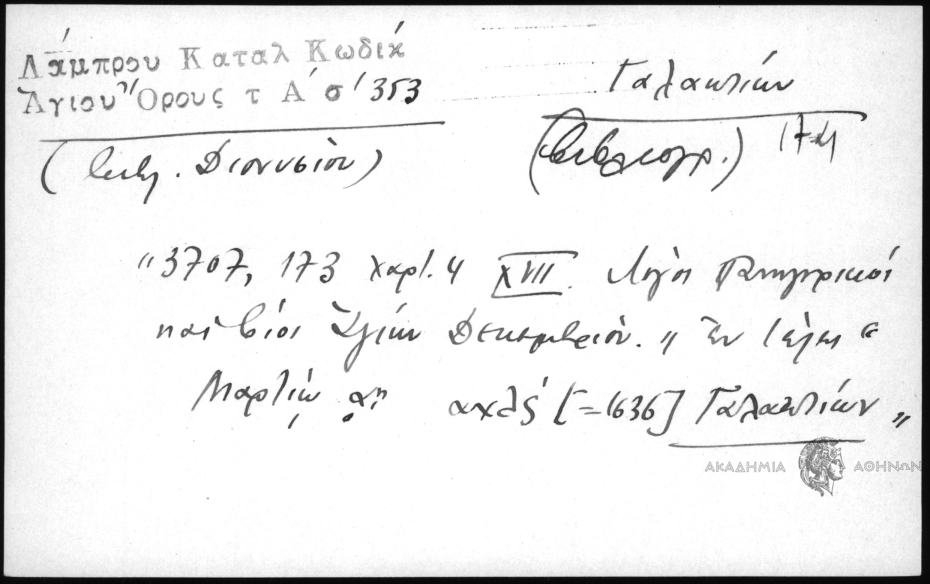 Λάμπρου Καταλ Κωδίκ
Ἁγίου Ὄρους τ Α' σ' 353
Γαλακτίων
(βιβλ. Διονυσίου)
(βιβλιογρ.)
"3707, 173 χαρτ. 4 XVII. Λόγοι Πανηγυρικοί
καὶ βίοι Ἁγίων Δεκεμβρίου. „ Ἐν τέλει "
Μαρτίῳ αῃ αχλς [=1636] Γαλακτίων „
ΑΚΑΔΗΜΙΑ ΑΘΗΝΩΝ